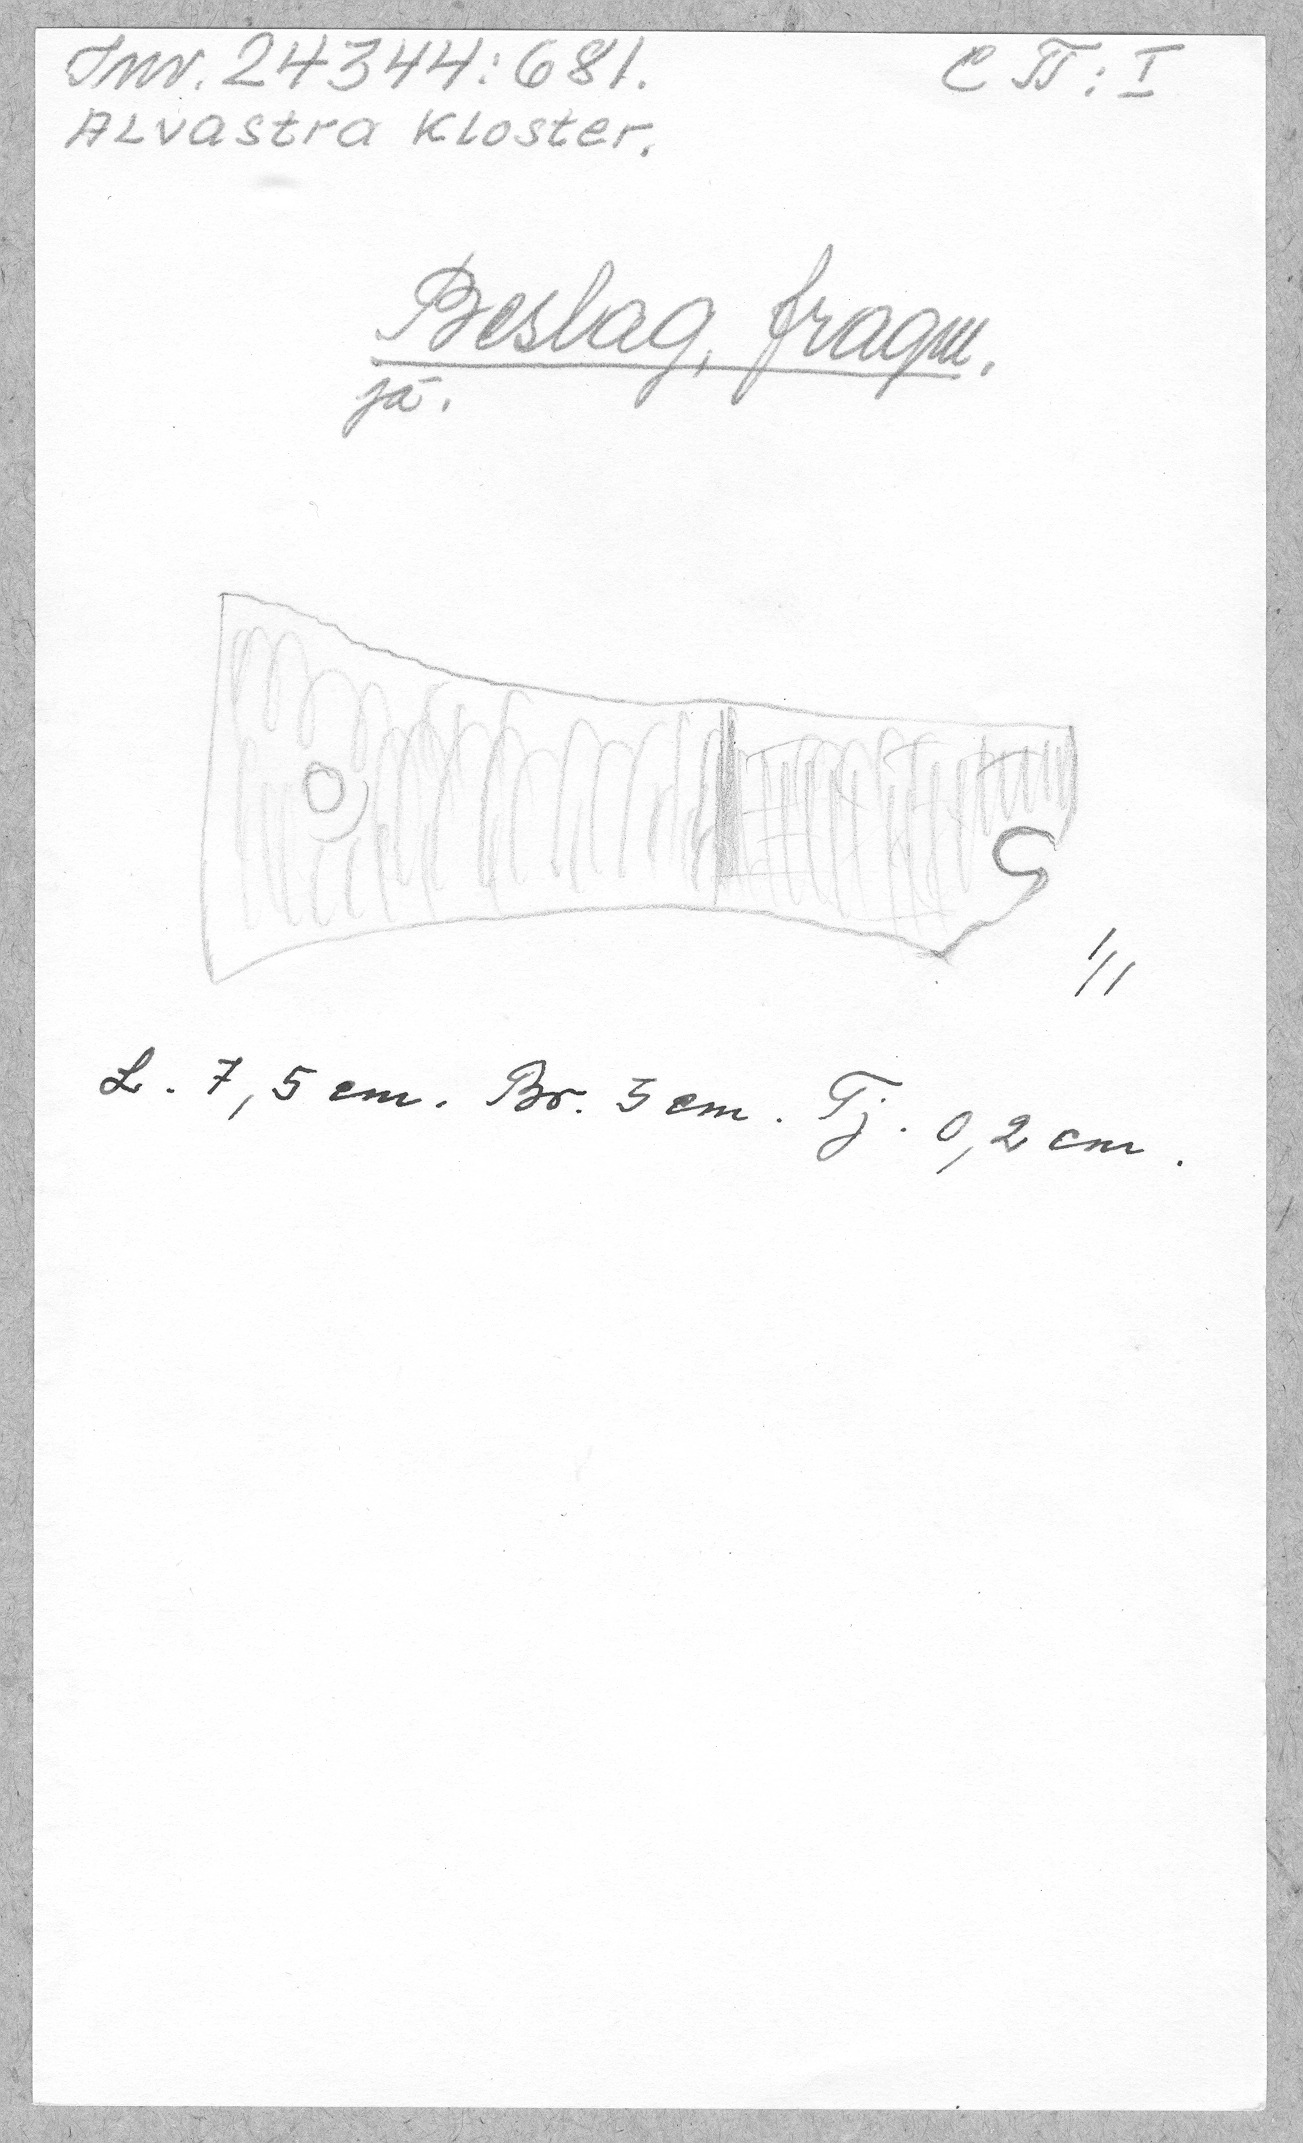 Inv. 24344:681.
C II : I
Alvastra Kloster.
Beslag, fragm.
jä.
1/1
L. 7,5 cm. Br. 3 cm. Tj. 0,2 cm.